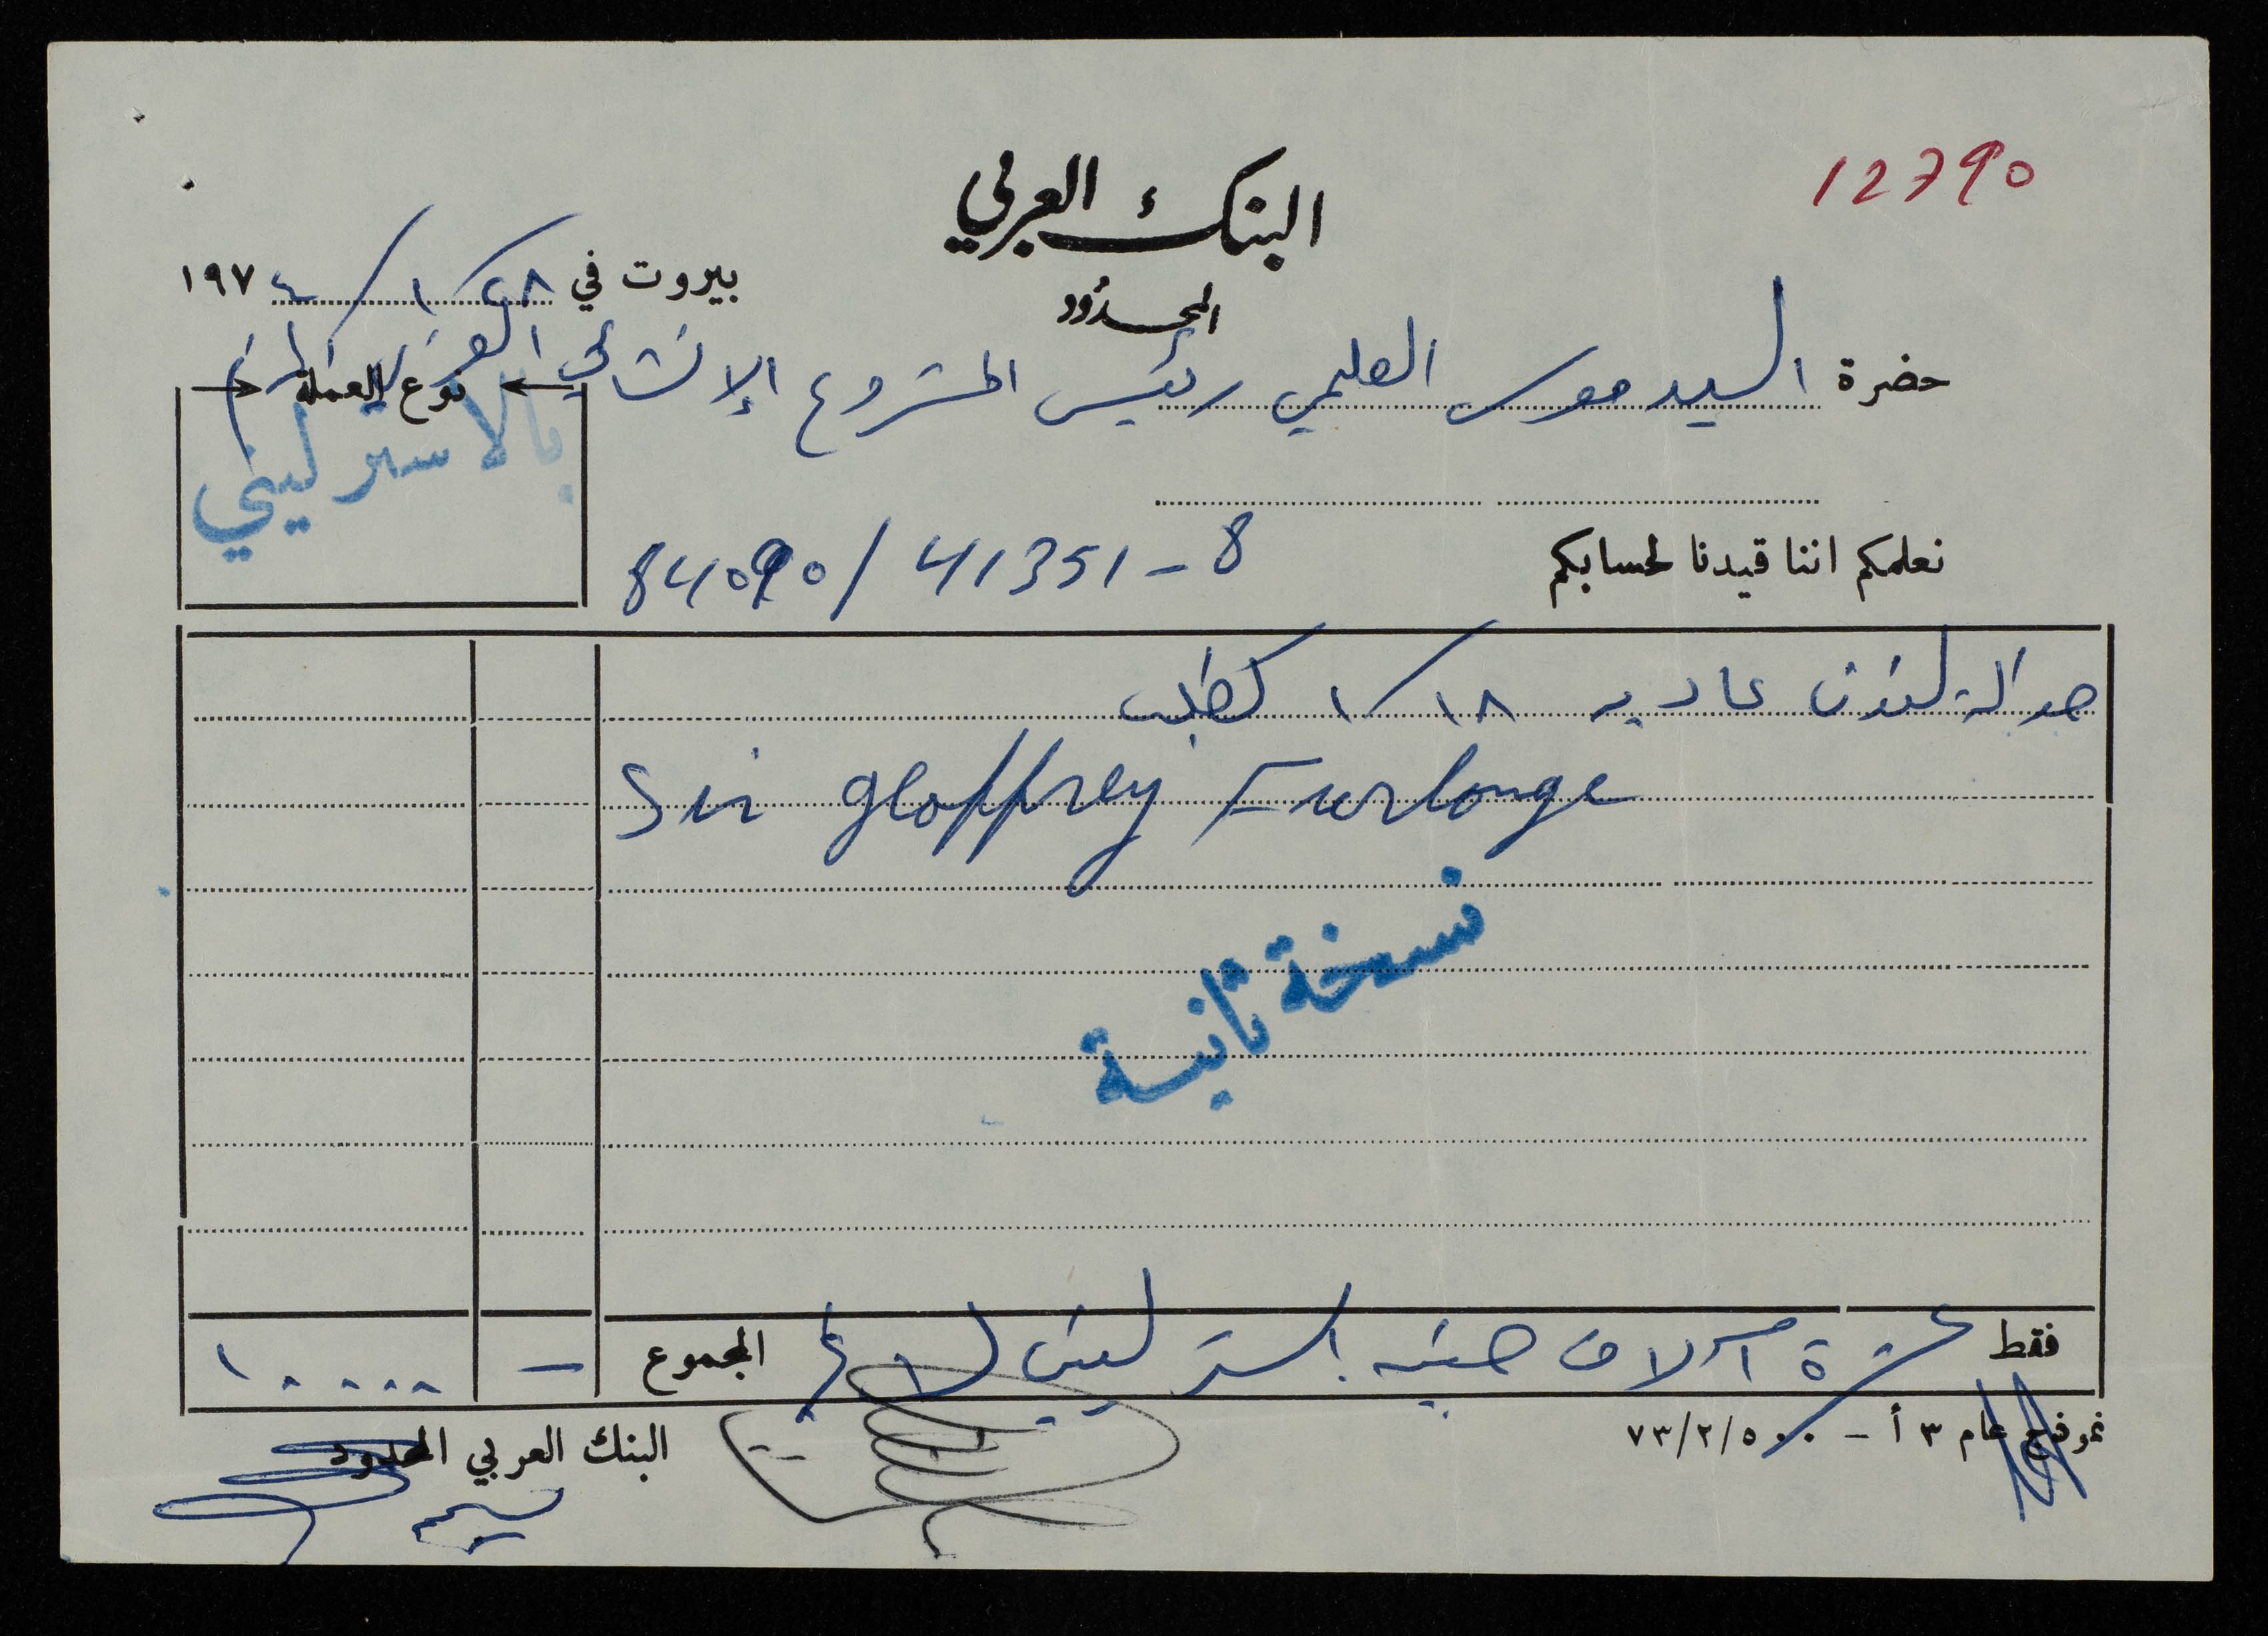 12790
البنك العربي
المحدود
بيروت في ٢٨ / ١ / ١٩٧٤
حضرة السيد موسى العلمي رئيس المشروع الإنشائي العربي المحترم
نوع العملة
بالاسترليني
نعلمكم اننا قيدنا لحسابكم 84090/41351-8
حوالة لندن عاديه ١٨ / ١ كطلب
Sir Geoffrey Furlonge
نسخة ثانية
فقط عشرة آلاف جنيه استرليني لا غير المجموع - ١٠٠٠٠
نموذج عام ٣ أ - ٧٣/٢/٥٠٠
البنك العربي المحدود